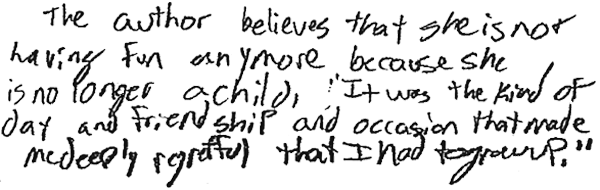 The author believes that she is not
having fun anymore because she
is no longer a child, "It was the kind of
day and friendship and occasion that made
me deeply regretful that I had to grow up."